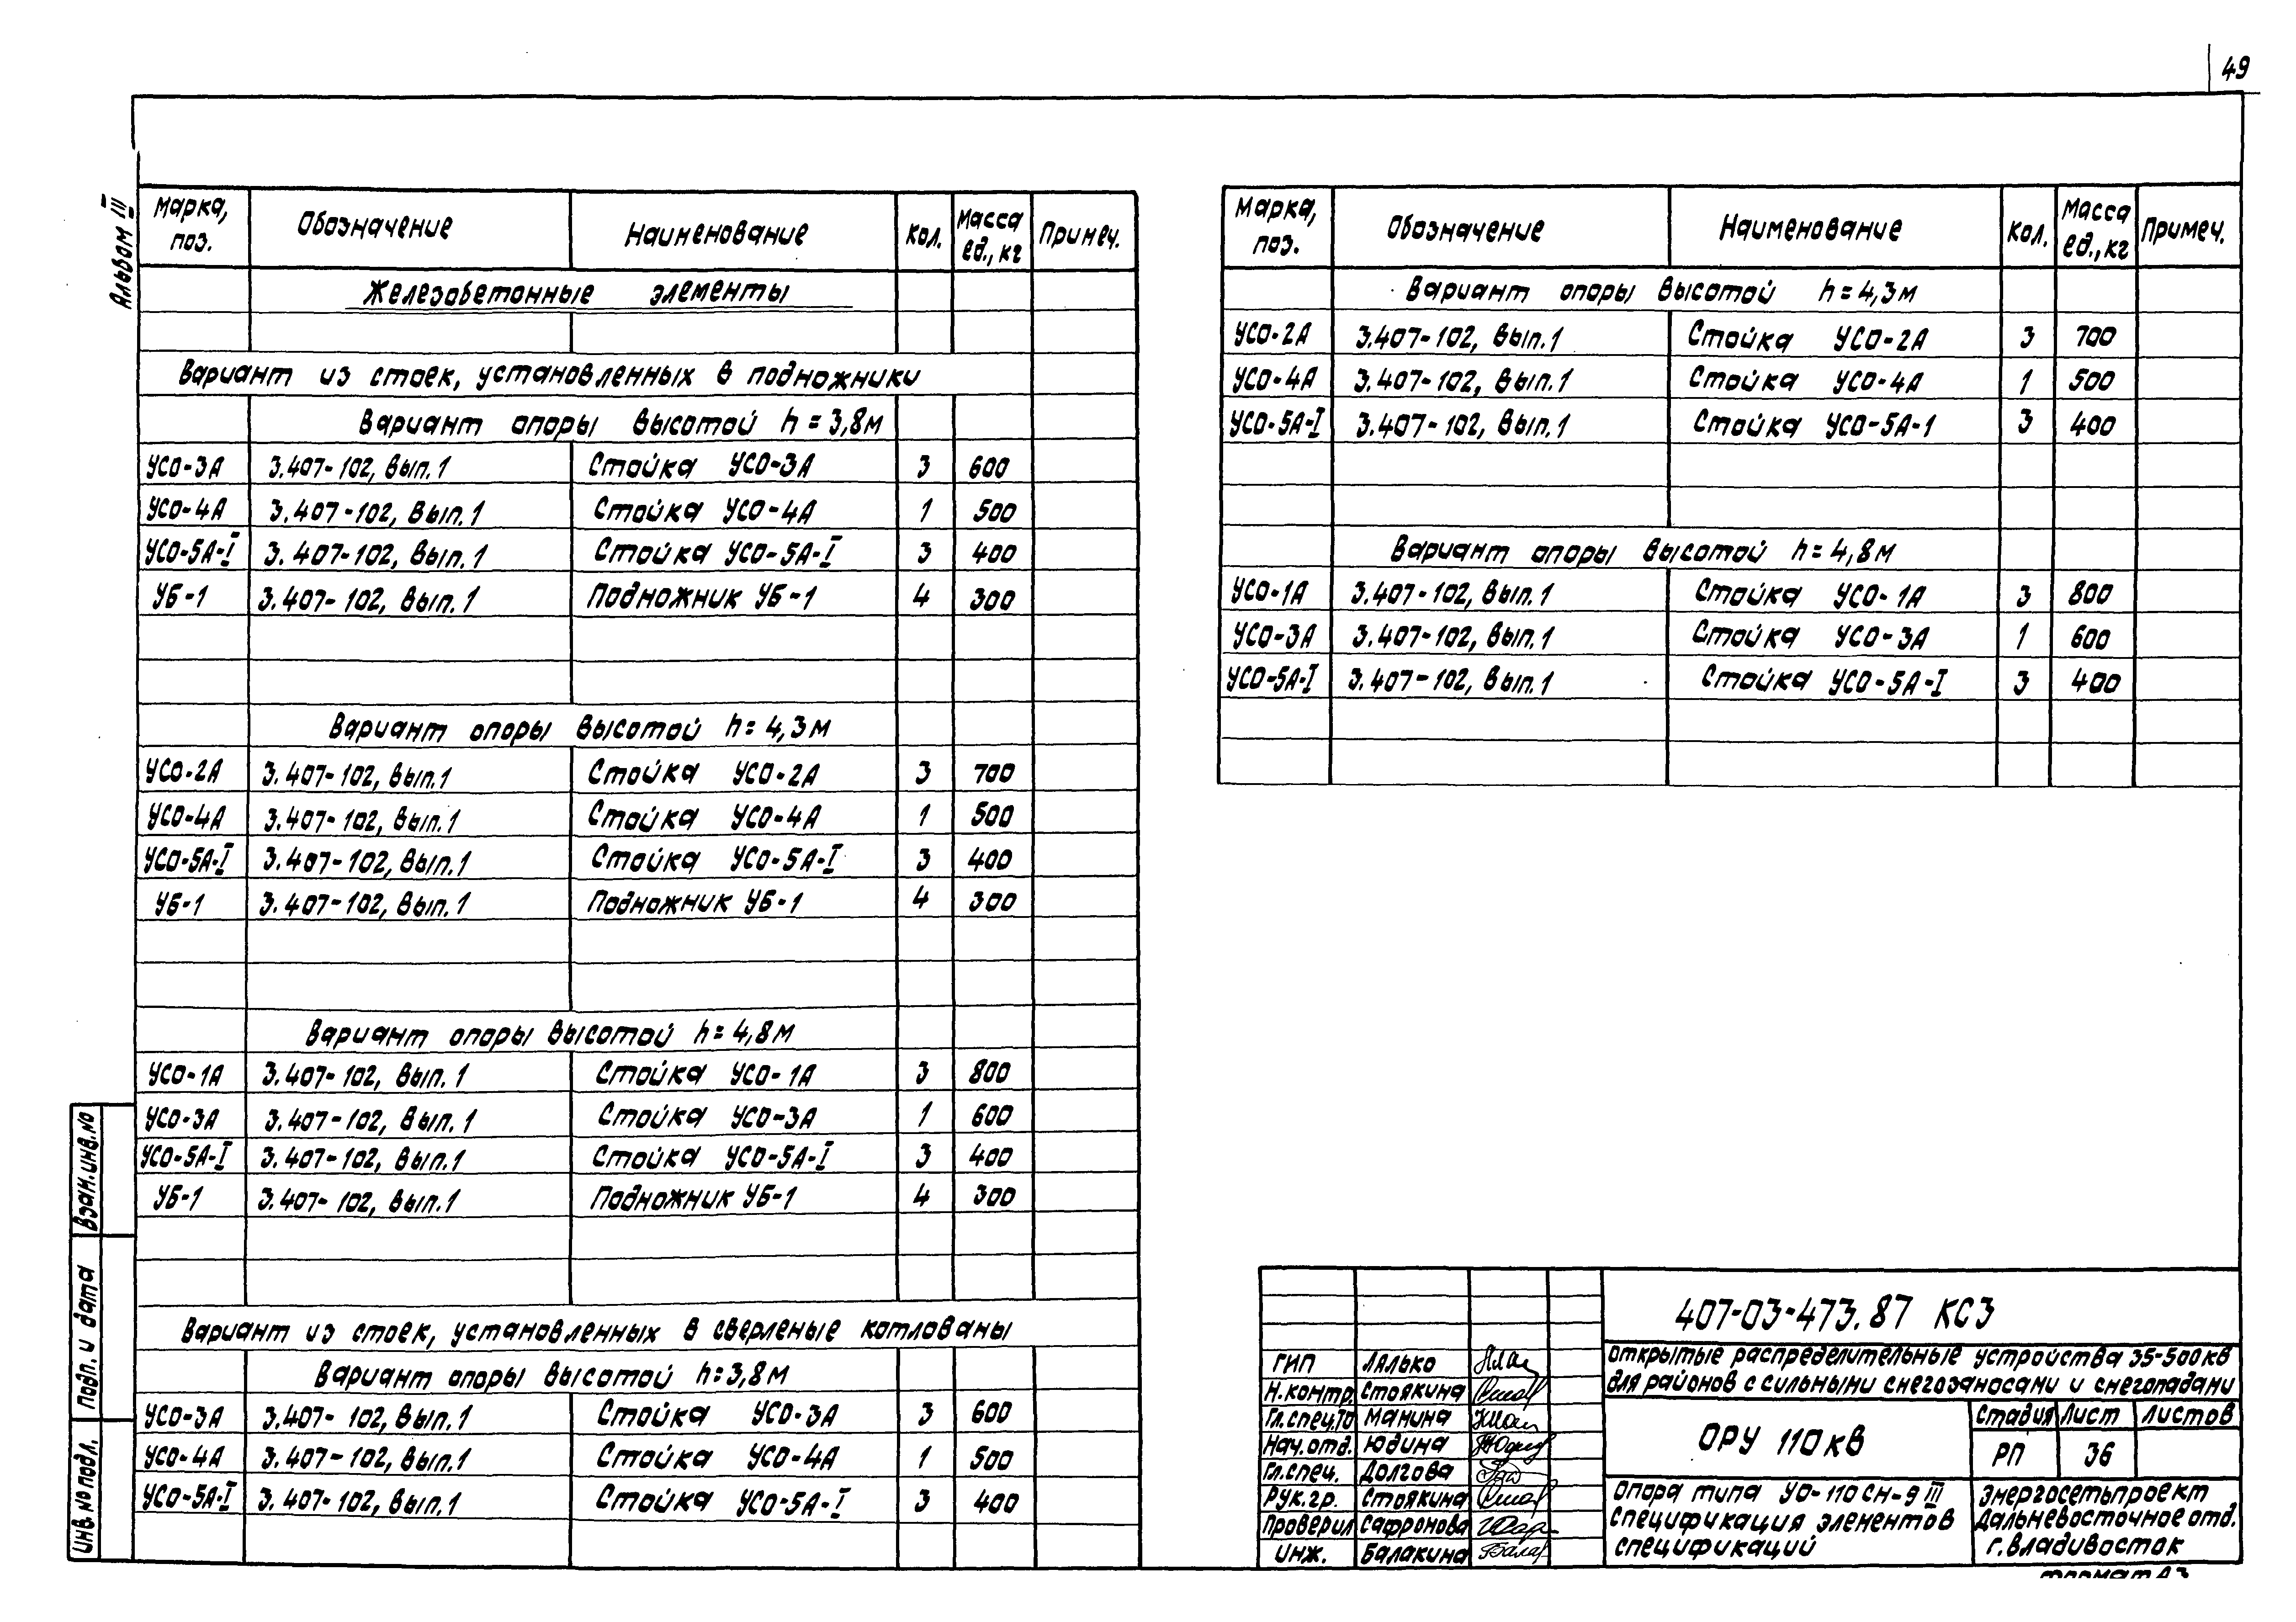 49
Альбом III
Марка, поз. Обозначение Наименование Кол. Масса ед., кг Примеч.
Железобетонные элементы
Вариант из стоек, установленных в подножники
Вариант опоры высотой h = 3,8м
УСО-3А 3.407-102, вып.1 Стойка УСО-3А 3 600
УСО-4А 3.407-102, вып.1 Стойка УСО-4А 1 500
УСО-5А-I 3.407-102, вып.1 Стойка УСО-5А-I 3 400
УБ-1 3.407-102, вып.1 Подножник УБ-1 4 300
Вариант опоры высотой h = 4,3м
УСО-2А 3.407-102, вып.1 Стойка УСО-2А 3 700
УСО-4А 3.407-102, вып.1 Стойка УСО-4А 1 500
УСО-5А-I 3.407-102, вып.1 Стойка УСО-5А-I 3 400
УБ-1 3.407-102, вып.1 Подножник УБ-1 4 300
Вариант опоры высотой h = 4,8м
УСО-1А 3.407-102, вып.1 Стойка УСО-1А 3 800
УСО-3А 3.407-102, вып.1 Стойка УСО-3А 1 600
УСО-5А-I 3.407-102, вып.1 Стойка УСО-5А-I 3 400
УБ-1 3.407-102, вып.1 Подножник УБ-1 4 300
Вариант из стоек, установленных в сверленые котлованы
Вариант опоры высотой h = 3,8м
УСО-3А 3.407-102, вып.1 Стойка УСО-3А 3 600
УСО-4А 3.407-102, вып.1 Стойка УСО-4А 1 500
УСО-5А-I 3.407-102, вып.1 Стойка УСО-5А-I 3 400
Марка, поз. Обозначение Наименование Кол. Масса ед., кг Примеч.
Вариант опоры высотой h = 4,3м
УСО-2А 3.407-102, вып.1 Стойка УСО-2А 3 700
УСО-4А 3.407-102, вып.1 Стойка УСО-4А 1 500
УСО-5А-I 3.407-102, вып.1 Стойка УСО-5А-1 3 400
Вариант опоры высотой h = 4,8м
УСО-1А 3.407-102, вып.1 Стойка УСО-1А 3 800
УСО-3А 3.407-102, вып.1 Стойка УСО-3А 1 600
УСО-5А-I 3.407-102, вып.1 Стойка УСО-5А-I 3 400
Взам.инв.№
Подп. и дата
Инв.№ подл.
407-03-473.87 КС3
Открытые распределительные устройства 35-500кВ
для районов с сильными снегозаносами и снегопадами
ГИП Лялько
Н.контр. Стоякина
Гл.спец.ТО Манина
Нач.отд. Юдина
Гл.спец. Долгова
Рук.гр. Стоякина
Проверил Сафронова
Инж. Балакина
ОРУ 110кВ
Стадия Лист Листов
РП 36
Опора типа УО-110СН-9 III
Спецификация элементов
спецификаций
Энергосетьпроект
Дальневосточное отд.
г.Владивосток
Формат А3